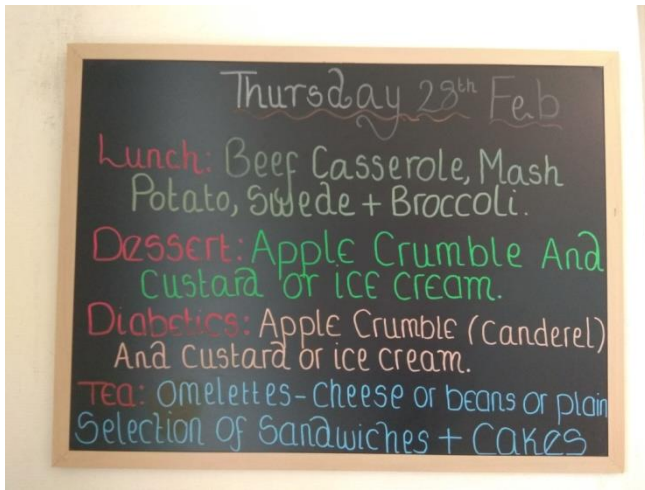 Thursday 28th Feb
Lunch: Beef Casserole, Mash
Potato, Swede + Broccoli.
Dessert: Apple Crumble And
Custard or ice cream.
Diabetics: Apple Crumble (Canderel)
And Custard or ice cream.
Tea: Omelettes - Cheese or beans or plain
Selection of Sandwiches + Cakes